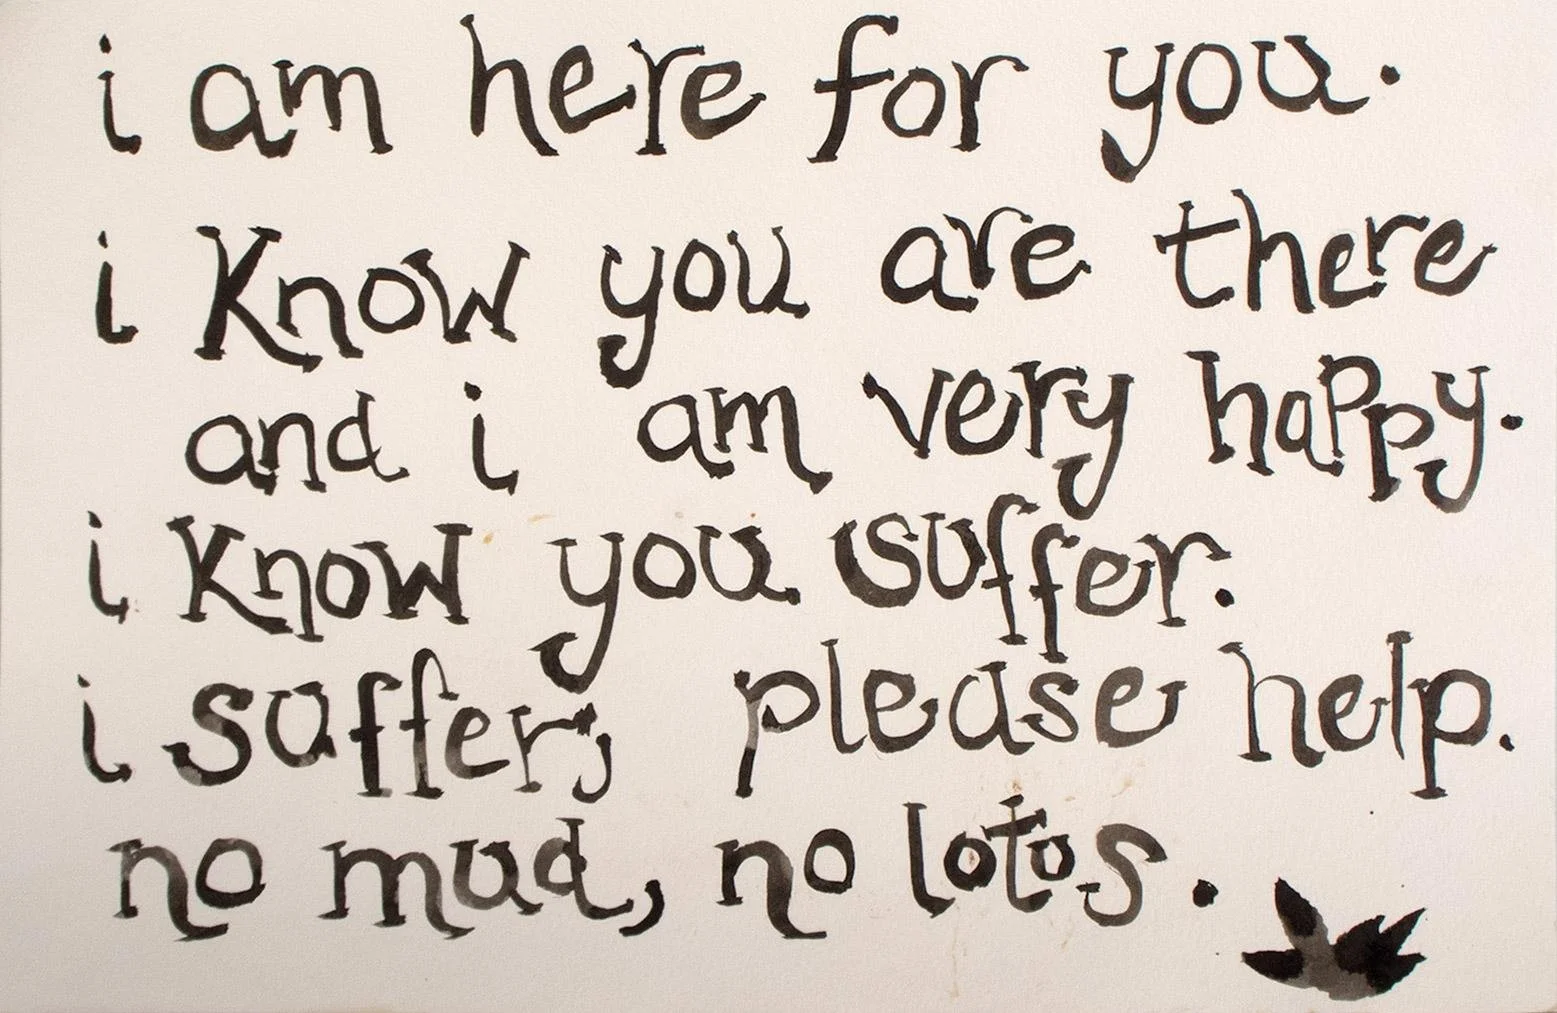 i am here for you.
i Know you are there
and i am very happy.
i Know you suffer.
i suffer, please help.
no mud, no lotus.